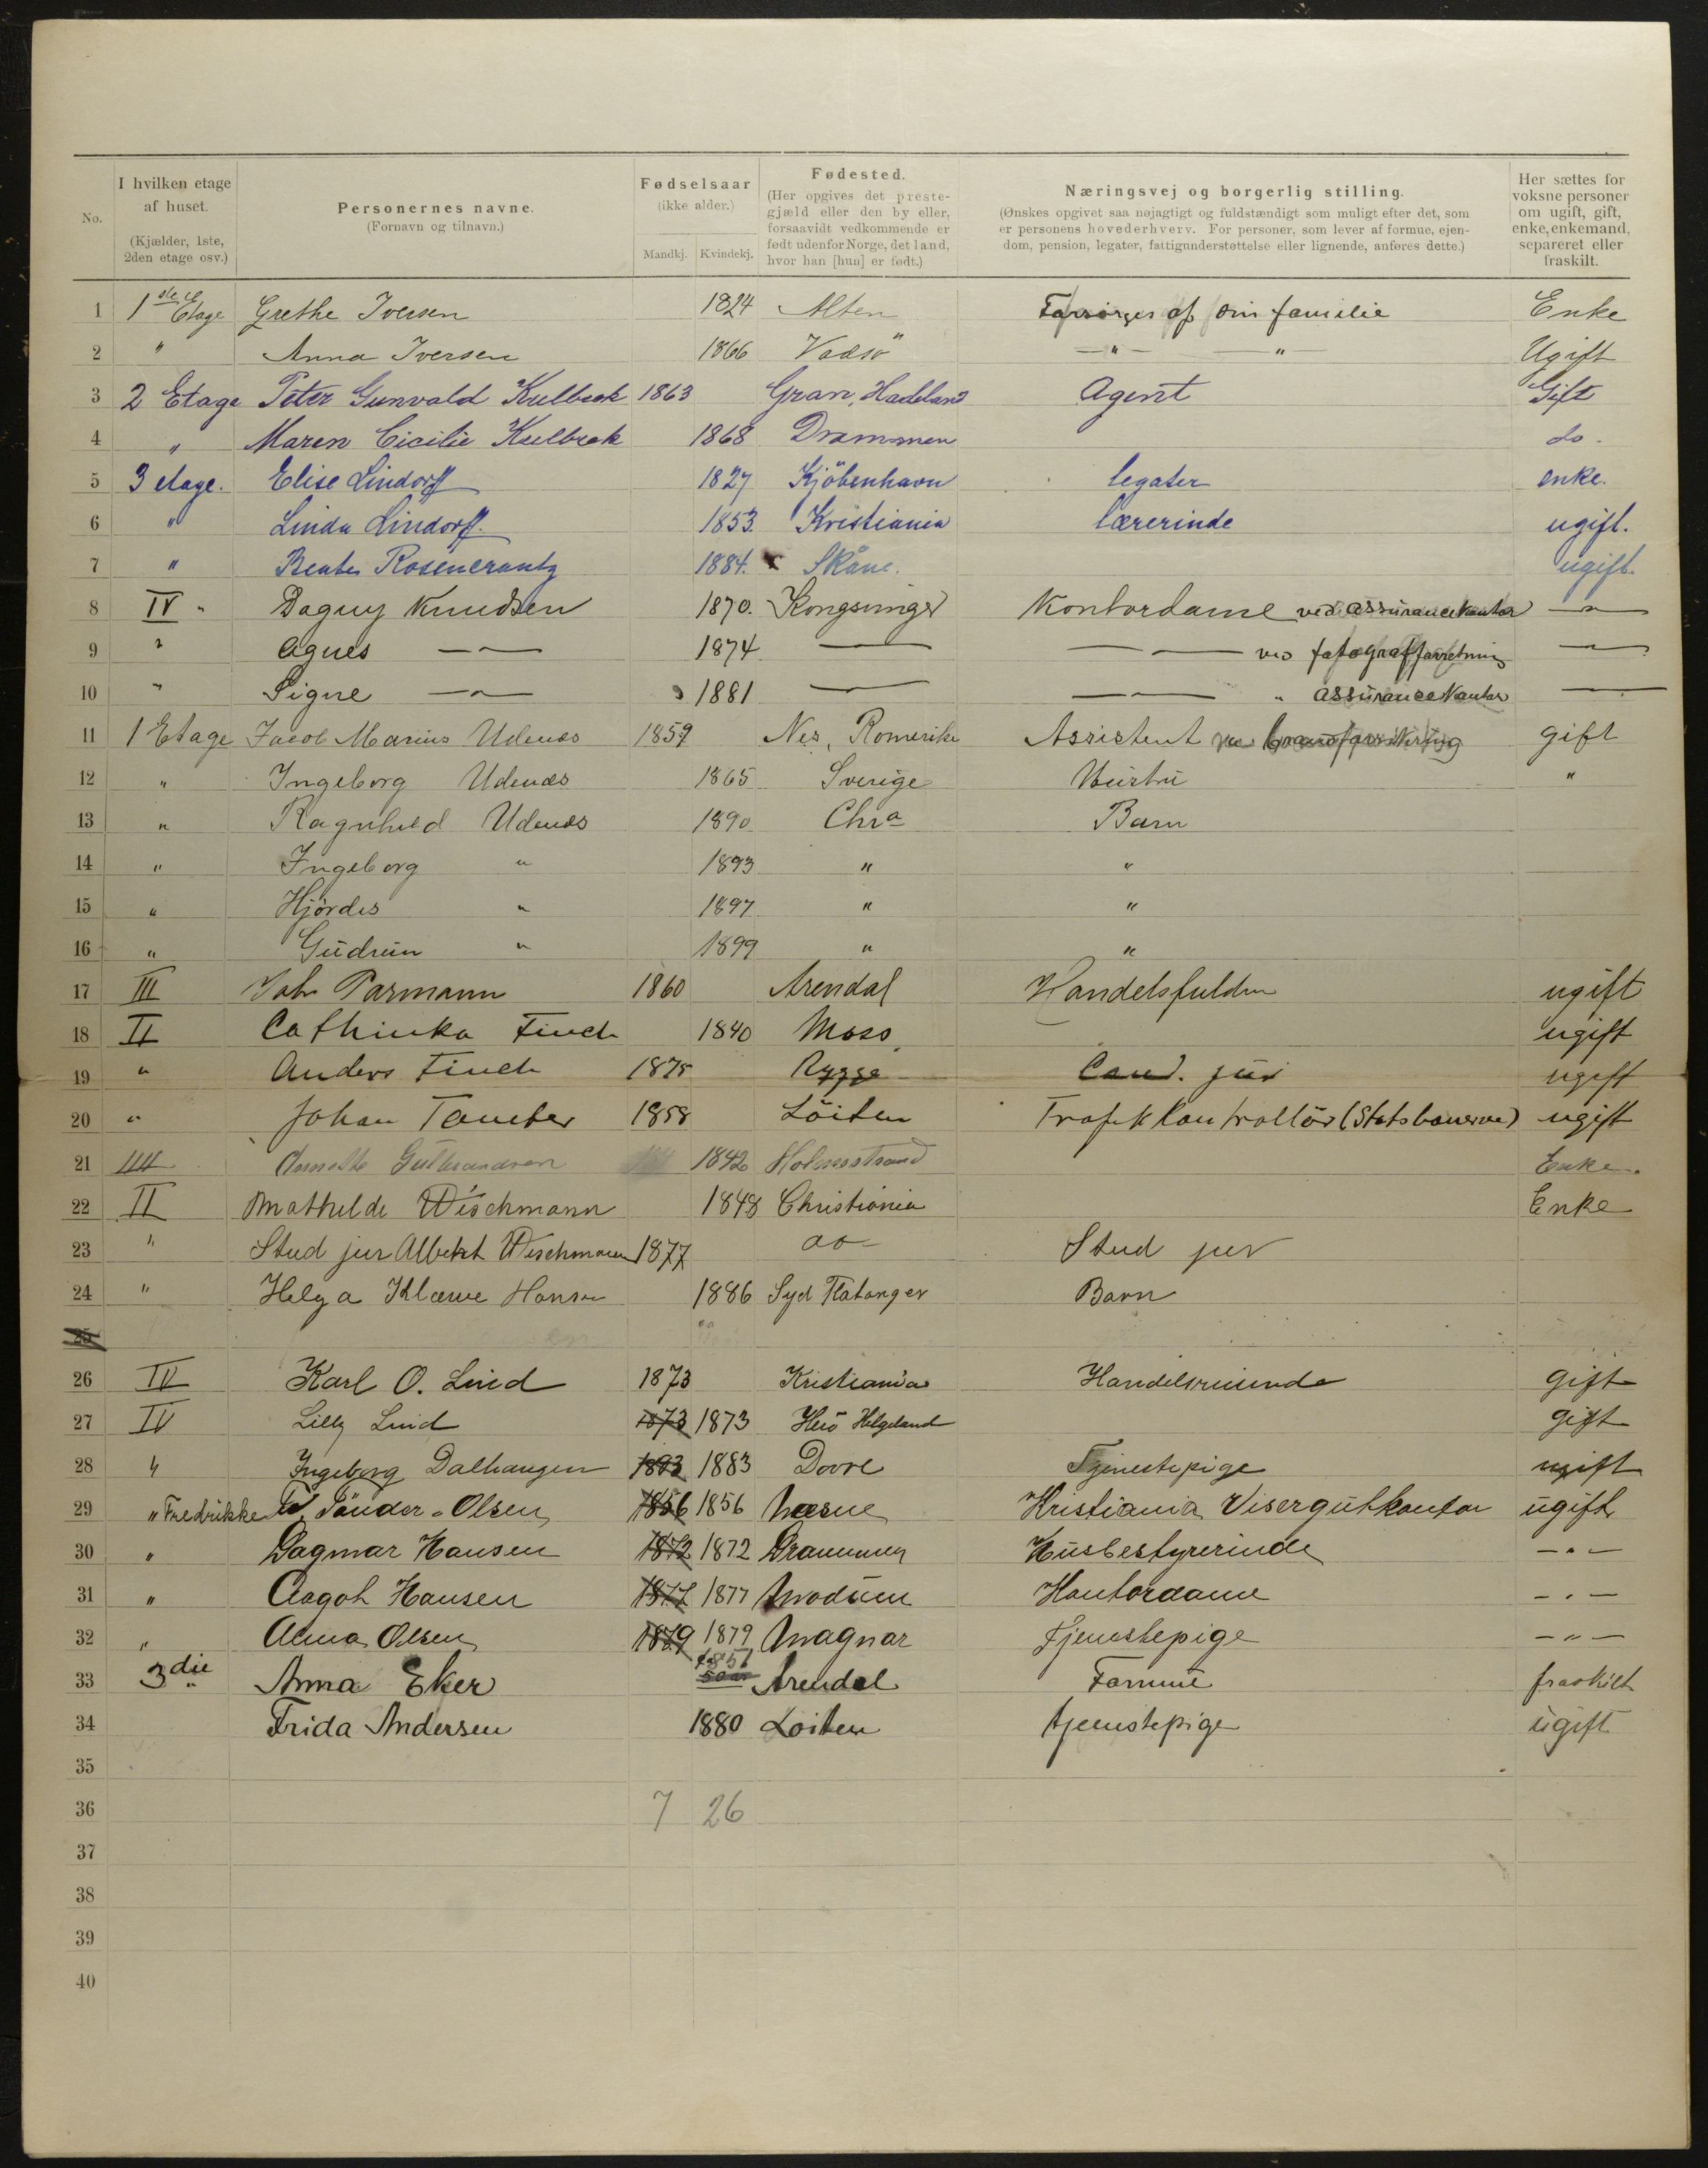 No.
I hvilken etage af huset.
(Kjælder, 1ste, 2den etage osv.)
Personernes navne.
(Fornavn og tilnavn.)
Fødselsaar
(ikke alder.)
Mandkj. Kvindekj.
Fødested.
(Her opgives det prestegjæld eller den by eller, forsaavidt vedkommende er født udenfor Norge, det land, hvor han [hun] er født.)
Næringsvej og borgerlig stilling.
(Ønskes opgivet saa nøjagtigt og fuldstændigt som muligt efter det, som er personens hovederhverv. For personer, som lever af formue, ejendom, pension, legater, fattigunderstøttelse eller lignende, anføres dette.)
Her sættes for voksne personer om ugift, gift, enke, enkemand, separeret eller fraskilt.
1 1ste Etage Grethe Iversen 1824 Alten Forsörges af sin familie Enke
2 " Anna Iversen 1866 Vadsö —"— —"— Ugift
3 2 Etage Peter Gunvald Kulbeck 1863 Gran, Hadeland Agent Gift
4 " Maren Cicilie Kulbeck 1868 Drammen do.
5 3 etage. Elise Lindorff 1827 Kjöbenhavn legater enke.
6 " Linda Lindorff. 1853. Kristiania lærerinde ugift.
7 " Beate Rosencrantz 1884. Skåne. ugift.
8 IV " Dagny Knudsen 1870. Kongsvinger Kontordame ved assurancekontor —"—
9 " Agnes —"— 1874 —— —— ved fotografforretning ——
10 " Signe —"— 1881 —— —— " assurancekontor ——
11 1 Etage Jacob Marius Udenæs 1859 Nes, Romerike Assistent gift
12 " Ingeborg Udenæs 1865 Sverige Hustru "
13 " Ragnhild Udenæs 1890 Chra Barn
14 " Ingeborg " 1893 " "
15 " Hjördes " 1897 " "
16 " Gudrun " 1899 " "
17 III Joh Parmann 1860 Arendal Handelsfuldm ugift
18 II Cathinka Finch 1840 Moss ugift
19 " Anders Finch 1875 Rygge Cand. jur ugift
20 " Johan Tomter 1858 Löiten Trafikkontrollör (Statsbanerne) ugift
21 IIII Gulbrandsen 1842 Holmestrand Enke.
22 II Mathilde Wischmann 1848 Christiania Enke
23 " Stud jur Albert Wischmann 1877 do Stud jur
24 " Helga Klæwe Hansen 1886 Syd Flatanger Barn
25
26 IV Karl O. Lind 1873 Kristiania Handelsreisende gift
27 IV Lilly Lind 1873 1873 Herö Helgeland gift
28 " Ingeborg Dalhaugen 1893 1883 Dovre Tjenestepige ugift
29 " Fredrikke Tönder-Olsen 1856 1856 Næsne Kristiania Visergutkontor ugift
30 " Dagmar Hansen 1872 1872 Drammen Husbestyrerinde —"—
31 " Aagot Hansen 1877 1877 Modum Kontordame —"—
32 " Alma Olsen 1879 1879 Magnor Tjenestepige —"—
33 3die " Anna Eker 1851 50 aar Arendal Formue fraskilt
34 Frida Andersen 1880 Loiten tjenestepige ugift
35
36 7 26
37
38
39
40